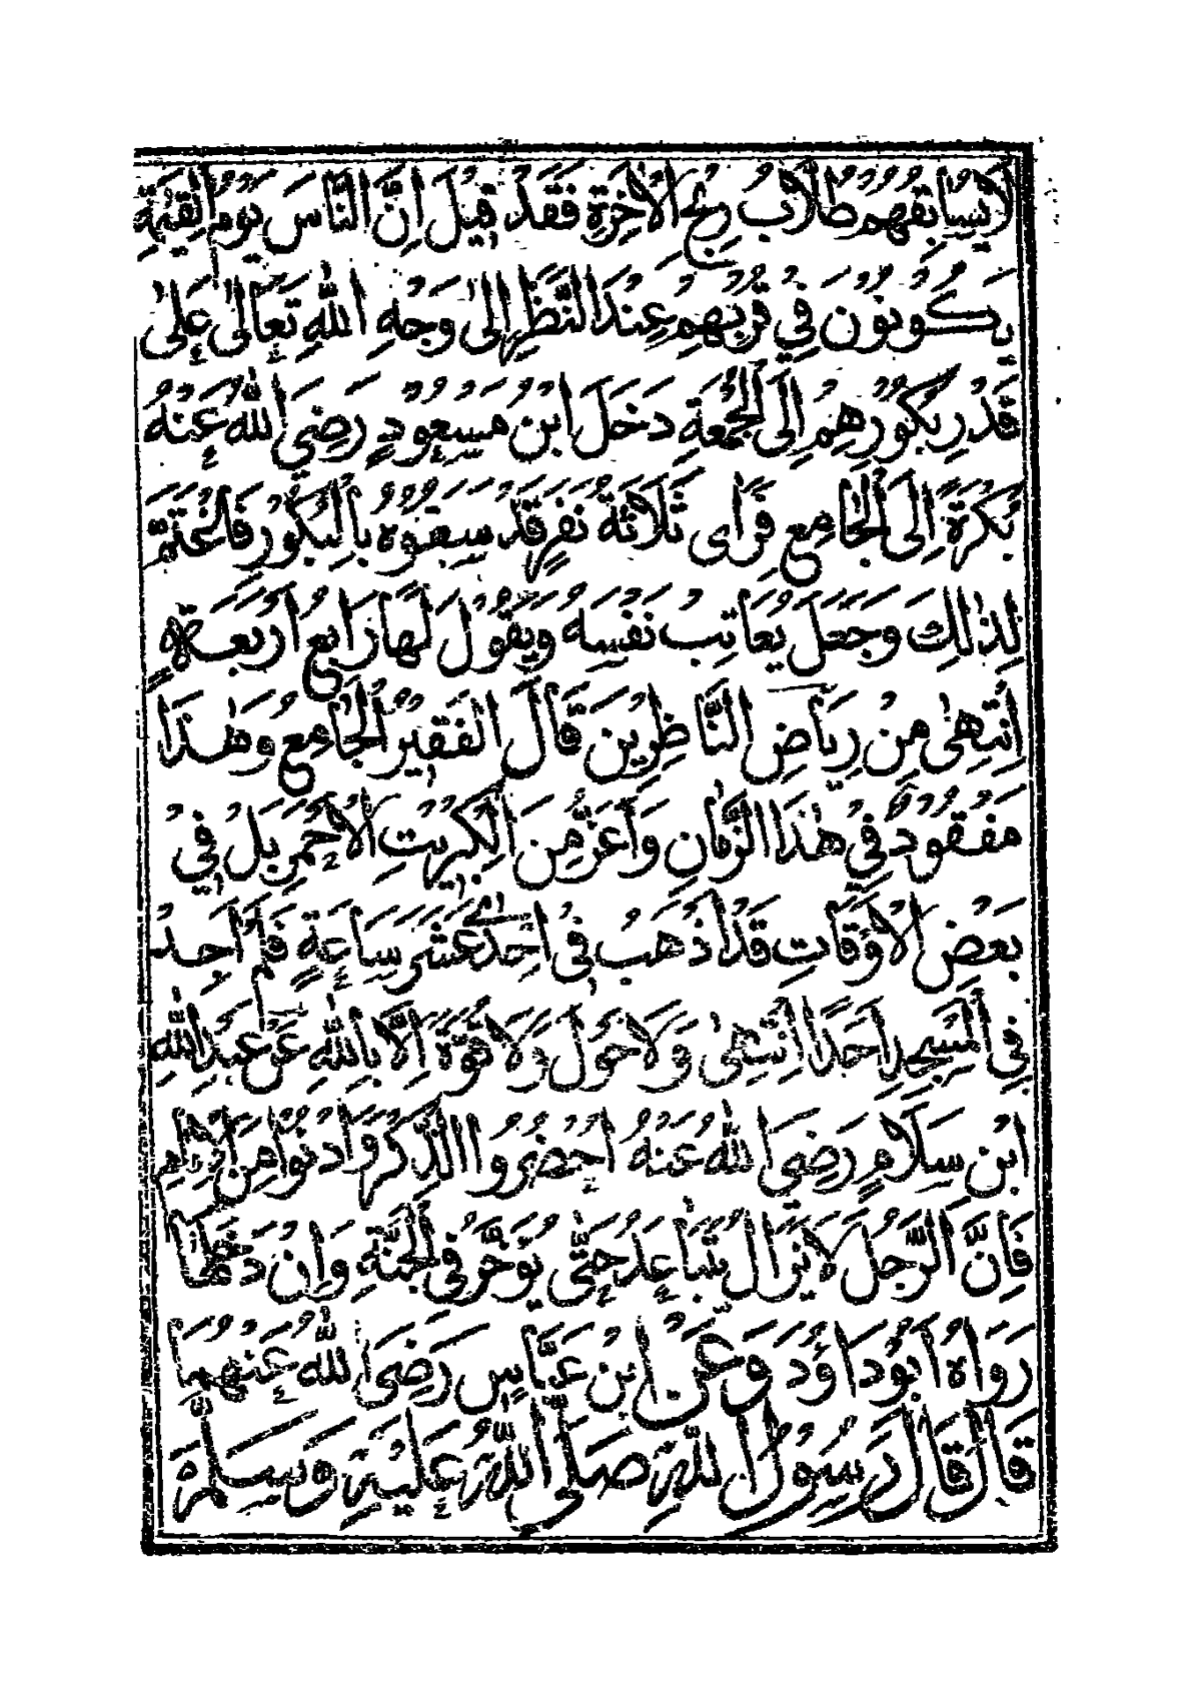 لَا يُسَابِقُهُمْ طُلَّابُ رِبْحِ الْاٰخِرَةِ فَقَدْ قِيْلَ اِنَّ النَّاسَ يَوْمَ الْقِيٰمَةِ
يَكُوْنُوْنَ فِيْ قُرْبِهِمْ عِنْدَ النَّظَرِ اِلٰى وَجْهِ اللّٰهِ تَعَالٰى عَلٰى
قَدْرِ بُكُوْرِهِمْ اِلَى الْجُمُعَةِ دَخَلَ ابْنُ مَسْعُوْدٍ رَضِيَ اللّٰهُ عَنْهُ
بُكْرَةً اِلَى الْجَامِعِ فَرَاٰى ثَلَاثَةَ نَفَرٍ قَدْ سَبَقُوْهُ بِالْبُكُوْرِ فَاغْتَمَّ
لِذٰلِكَ وَجَعَلَ يُعَاتِبُ نَفْسَهُ وَيَقُوْلُ لَهَا رَابِعُ اَرْبَعَةٍ
اِنْتَهٰى مِنْ رِيَاضِ النَّاظِرِيْنَ قَالَ الْفَقِيْرُ الْجَامِعُ وَهٰذَا
مَفْقُوْدٌ فِيْ هٰذَا الزَّمَانِ وَاَعَزُّ مِنَ الْكِبْرِيْتِ الْاَحْمَرِ بَلْ فِيْ
بَعْضِ الْاَوْقَاتِ قَدْ اَذْهَبُ فِيْ اِحْدٰى عَشَرَ سَاعَةٍ فَلَمْ اَجِدْ
فِي الْمَسْجِدِ اَحَدًا اِنْتَهٰى وَلَا حَوْلَ وَلَا قُوَّةَ اِلَّا بِاللّٰهِ عَنْ عَبْدِ اللّٰهِ
ابْنِ سَلَامٍ رَضِيَ اللّٰهُ عَنْهُ اُحْضُرُوا الذِّكْرَ وَادْنُوْا مِنَ الْاِمَامِ
فَاِنَّ الرَّجُلَ لَا يَزَالُ يَتَبَاعَدُ حَتّٰى يُؤَخَّرَ فِي الْجَنَّةِ وَاِنْ دَخَلَهَا
رَوَاهُ اَبُوْ دَاوُدَ وَعَنْ ابْنِ عَبَّاسٍ رَضِيَ اللّٰهُ عَنْهُمَا
قَالَ قَالَ رَسُوْلُ اللّٰهِ صَلَّى اللّٰهُ عَلَيْهِ وَسَلَّمَ